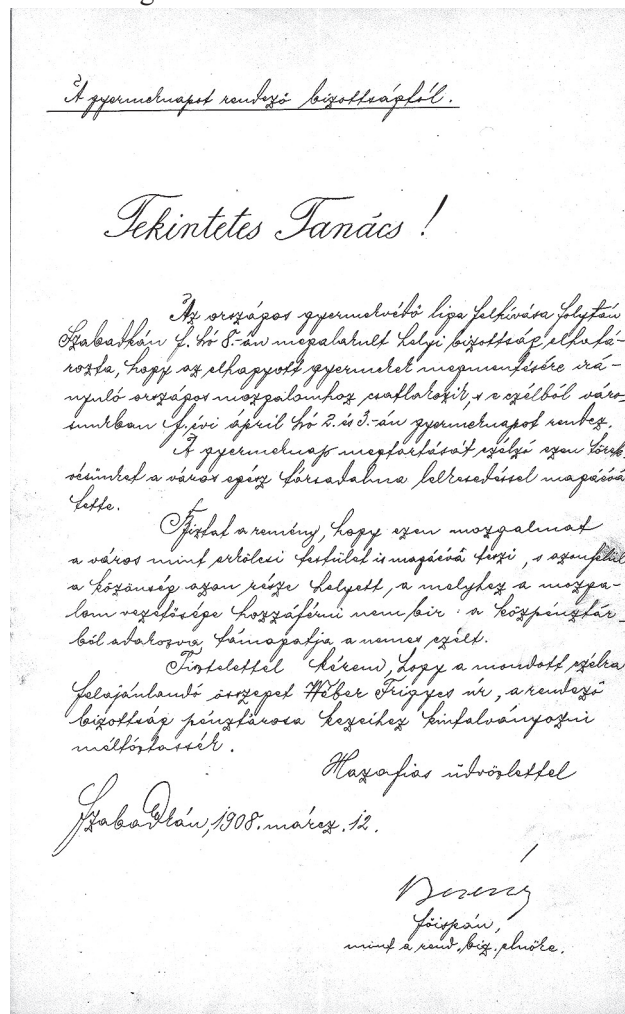 A gyermeknapot rendező bizottságtól.
Tekintetes Tanács !
Az országos gyermekvédő liga felhívása folytán
Szabadkán f. hó 8.-án megalakult helyi bizottság elhatá-
rozta, hogy az elhagyott gyermekek megmentésére irá-
nyuló országos mozgalomhoz csatlakozik, s e czélból váro-
sunkban f. évi április hó 2. és 3.-án gyermeknapot rendez.
A gyermeknap megtartását czélzó ezen törek-
vésünket a város egész társadalma lelkesedéssel magáévá
tette.
Biztat a remény, hogy ezen mozgalmat
a város mint erkölcsi testület is magáévá teszi, s azonfelül
a közönség azon része helyett, a melyhez a mozga-
lom vezetősége hozzáférni nem bir a közpénztár-
ból adakozva, támogatja a nemes czélt.
Tisztelettel kérem, hogy a mondott czélra
felajánlandó összeget Wéber Frigyes úr, a rendező
bizottság pénztárosa kezeihez kiutalványozni
méltóztassék.
Hazafias üdvözlettel
Szabadkán, 1908. márcz. 12.
főispán,
mint a rend. biz. elnöke.